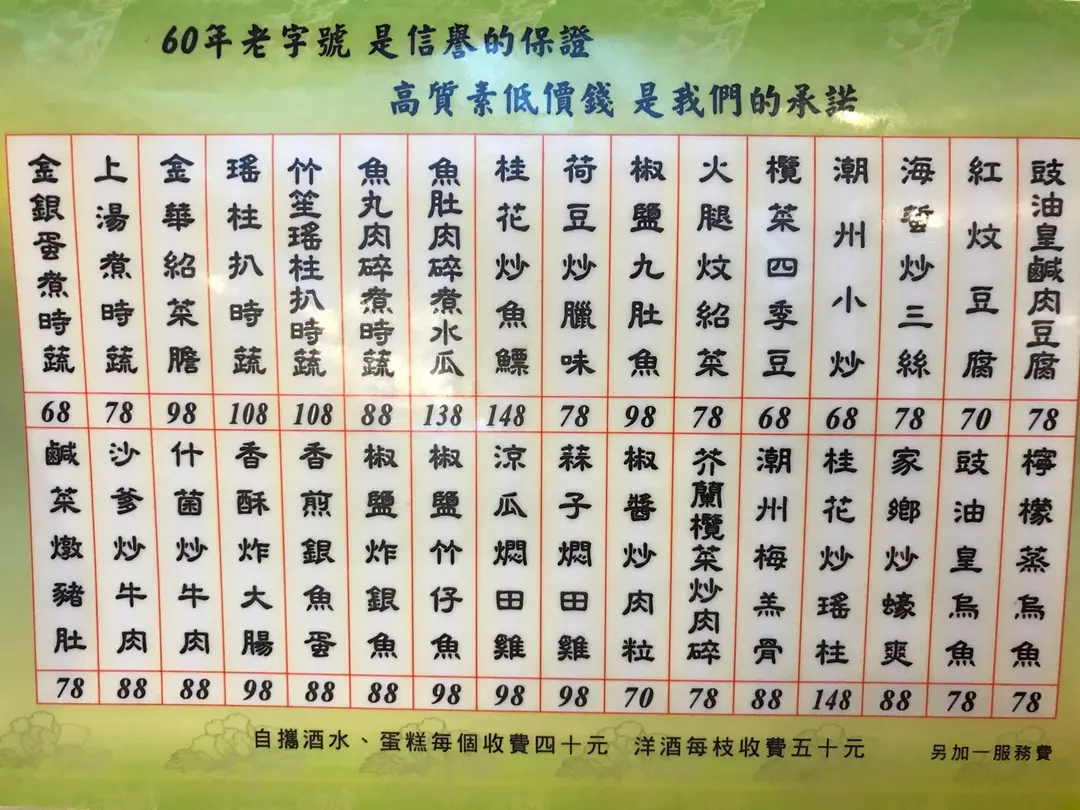 60年老字號 是信譽的保證
高質素低價錢 是我們的承諾
豉油皇鹹肉豆腐
78
紅炆豆腐
70
海蜇炒三絲
78
潮州小炒
68
欖菜四季豆
68
火腿炆紹菜
78
椒鹽九肚魚
98
荷豆炒臘味
78
桂花炒魚鰾
148
魚肚肉碎煮水瓜
138
魚丸肉碎煮時蔬
88
竹笙瑤柱扒時蔬
108
瑤柱扒時蔬
108
金華紹菜膽
98
上湯煮時蔬
78
金銀蛋煮時蔬
68
檸檬蒸烏魚
78
豉油皇烏魚
78
家鄉炒蠔爽
88
桂花炒瑤柱
148
潮州梅羔骨
88
芥蘭欖菜炒肉碎
78
椒醬炒肉粒
70
蒜子燜田雞
98
涼瓜燜田雞
98
椒鹽竹仔魚
98
椒鹽炸銀魚
88
香煎銀魚蛋
88
香酥炸大腸
98
什菌炒牛肉
88
沙爹炒牛肉
88
鹹菜燉豬肚
78
自攜酒水、蛋糕每個收費四十元 洋酒每枝收費五十元 另加一服務費